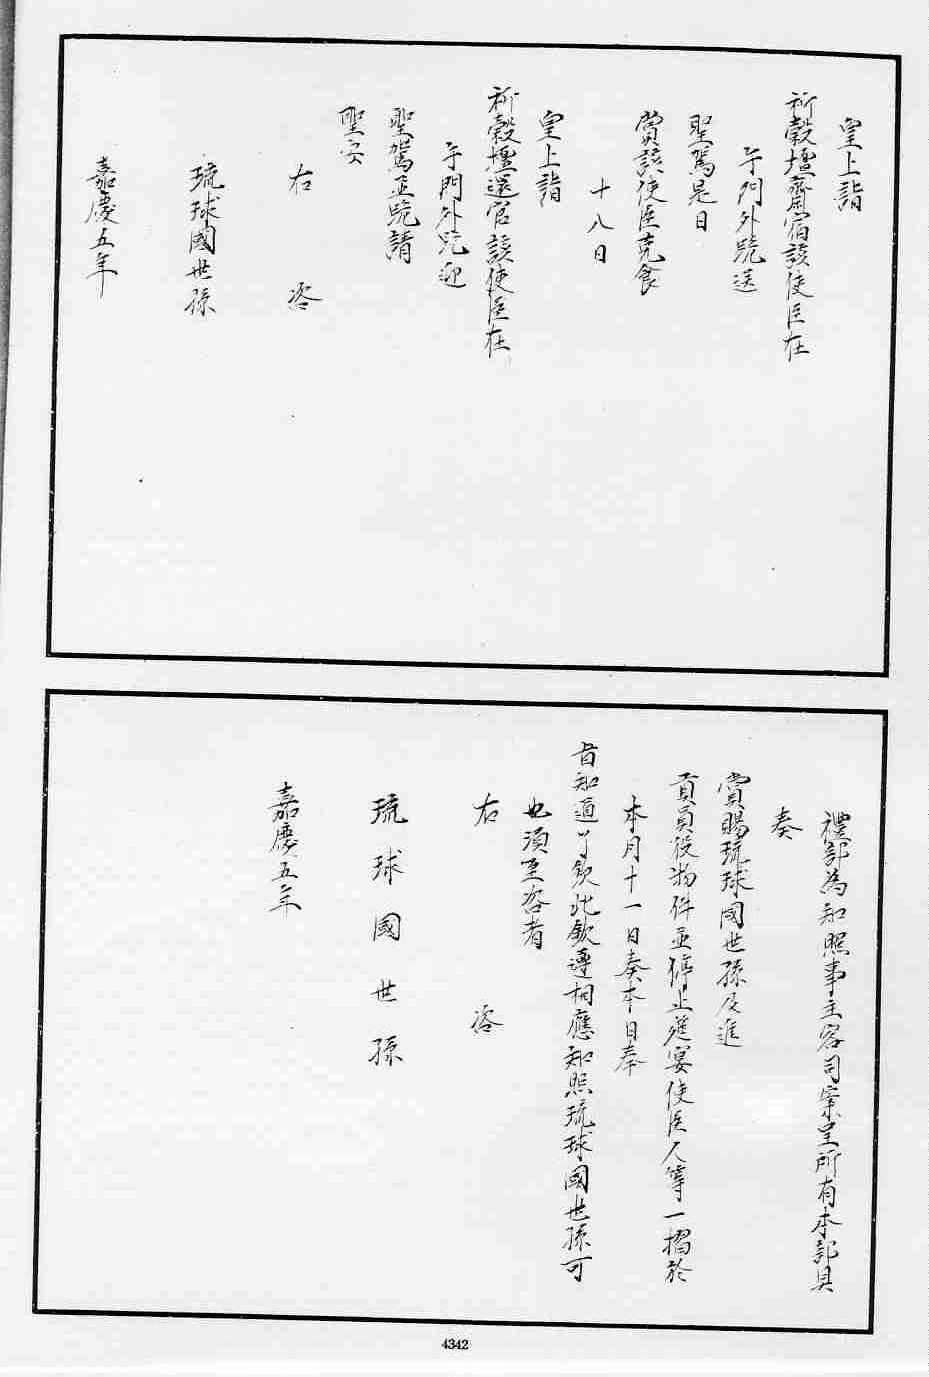 皇上詣
祈穀壇齋宿該使臣在
午門外跪送
聖駕是日
賞該使臣克食
十八日
皇上詣
祈穀壇還宮該使臣在
午門外跪迎
聖駕並跪請
聖安
右 咨
琉球國世孫
嘉慶五年
禮部為知照事主客司案呈所有本部具
奏
賞賜琉球國世孫及進
貢員役物件並停止筵宴使臣人等一摺於
本月十一日奏本日奉
旨知道了欽此欽遵相應知照琉球國世孫可
也須至咨者
右 咨
琉球國世孫
嘉慶五年
4342